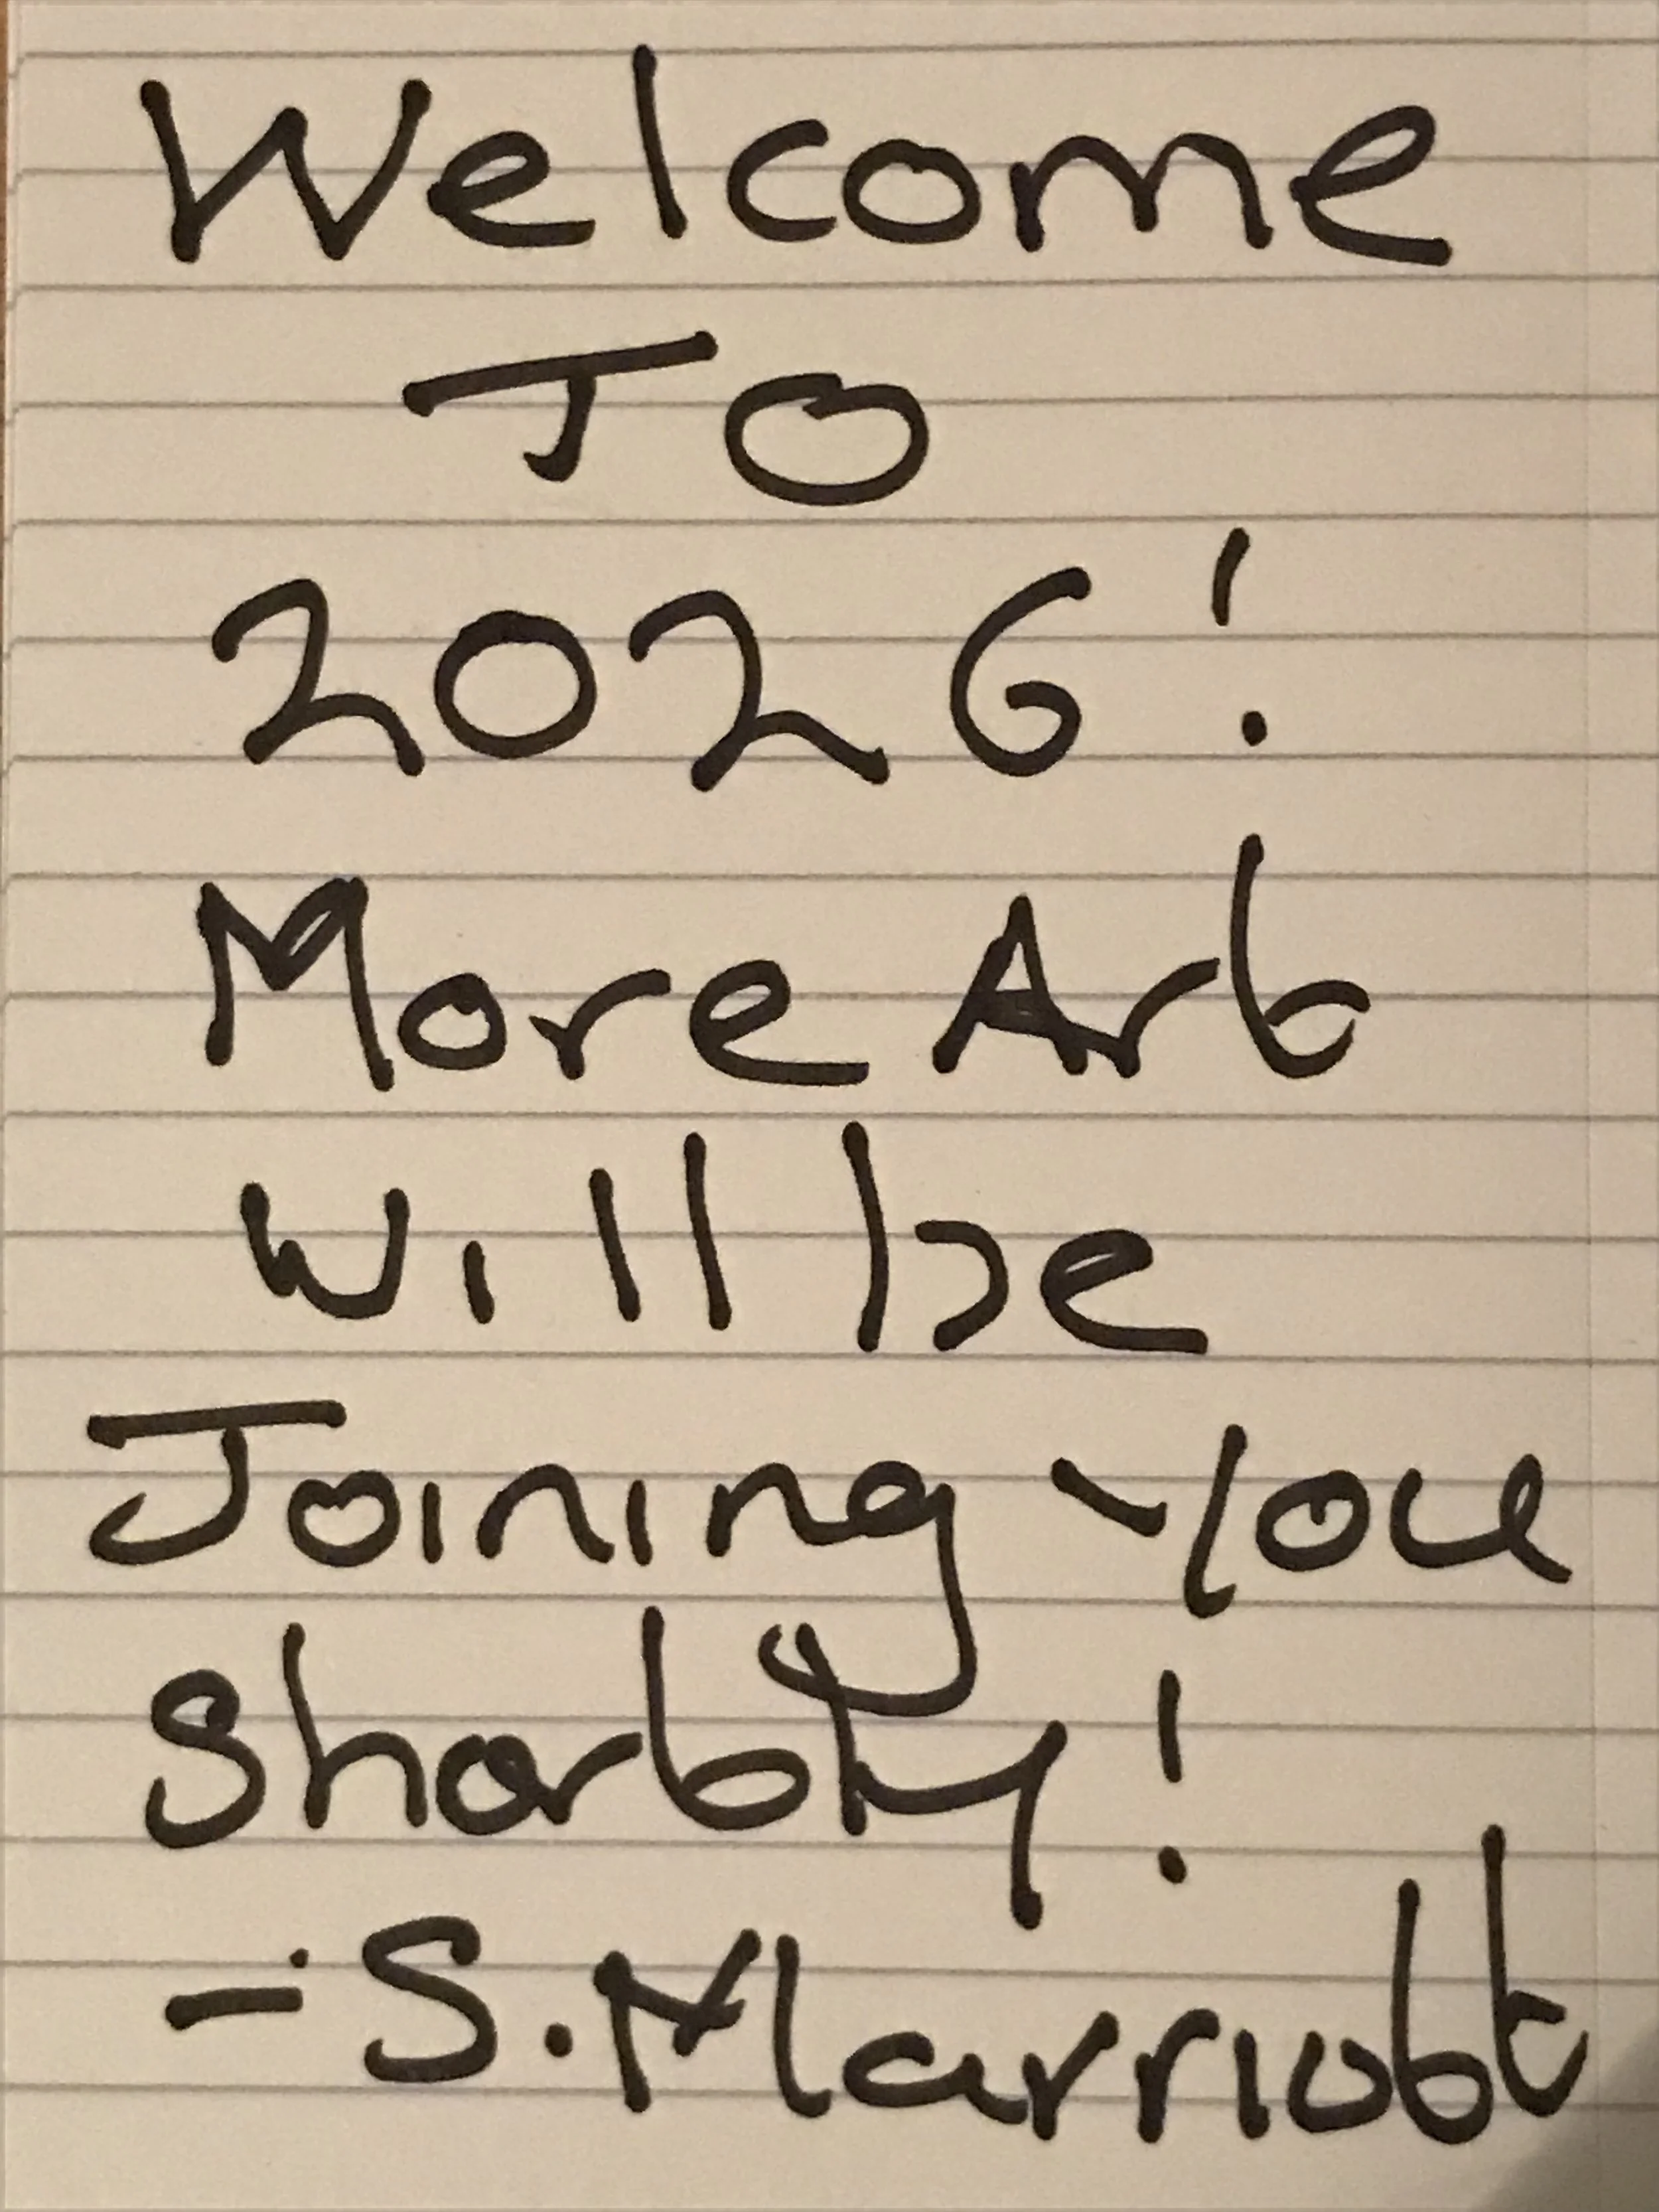 Welcome
To
2026!
More Art
will be
Joining You
shortly!
- S. Marriott